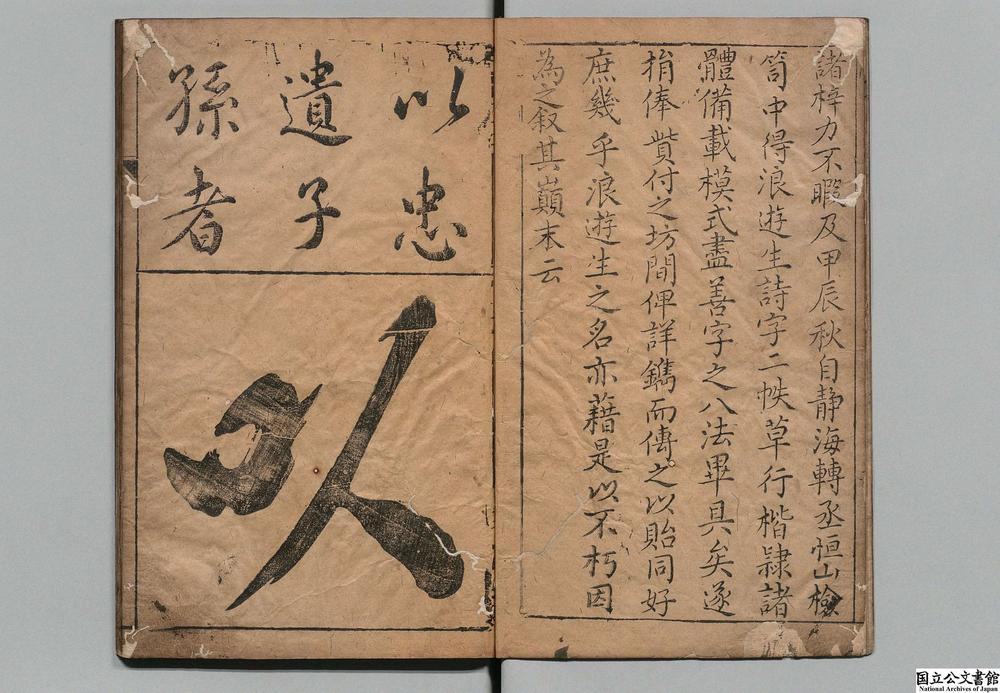 諸梓力不暇及甲辰秋自静海轉丞恒山檢
笥中得浪遊生詩字二帙草行楷隷諸
體備載模式盡善字之八法畢具矣遂
捐俸貲付之坊間俾詳鐫而傳之以貽同好
庶幾乎浪遊生之名亦藉是以不朽因
為之叙其巔末云
以忠
遺子
孫者
以
国立公文書館
National Archives of Japan